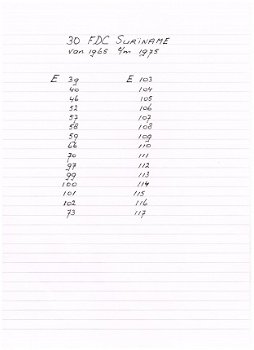 30 FDC SURINAME
van 1965 t/m 1975
E 39 E 103
40 104
46 105
52 106
57 107
58 108
59 109
66 110
70 111
97 112
99 113
100 114
101 115
102 116
73 117